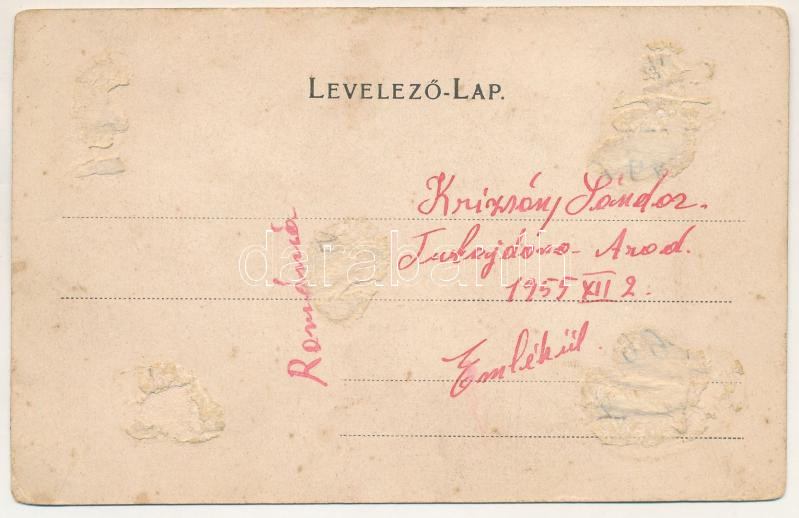 LEVELEZŐ-LAP.
Krizsány Sándor.
Arad.
1955 XII 2.
Emlékül.
Románia
darabanth